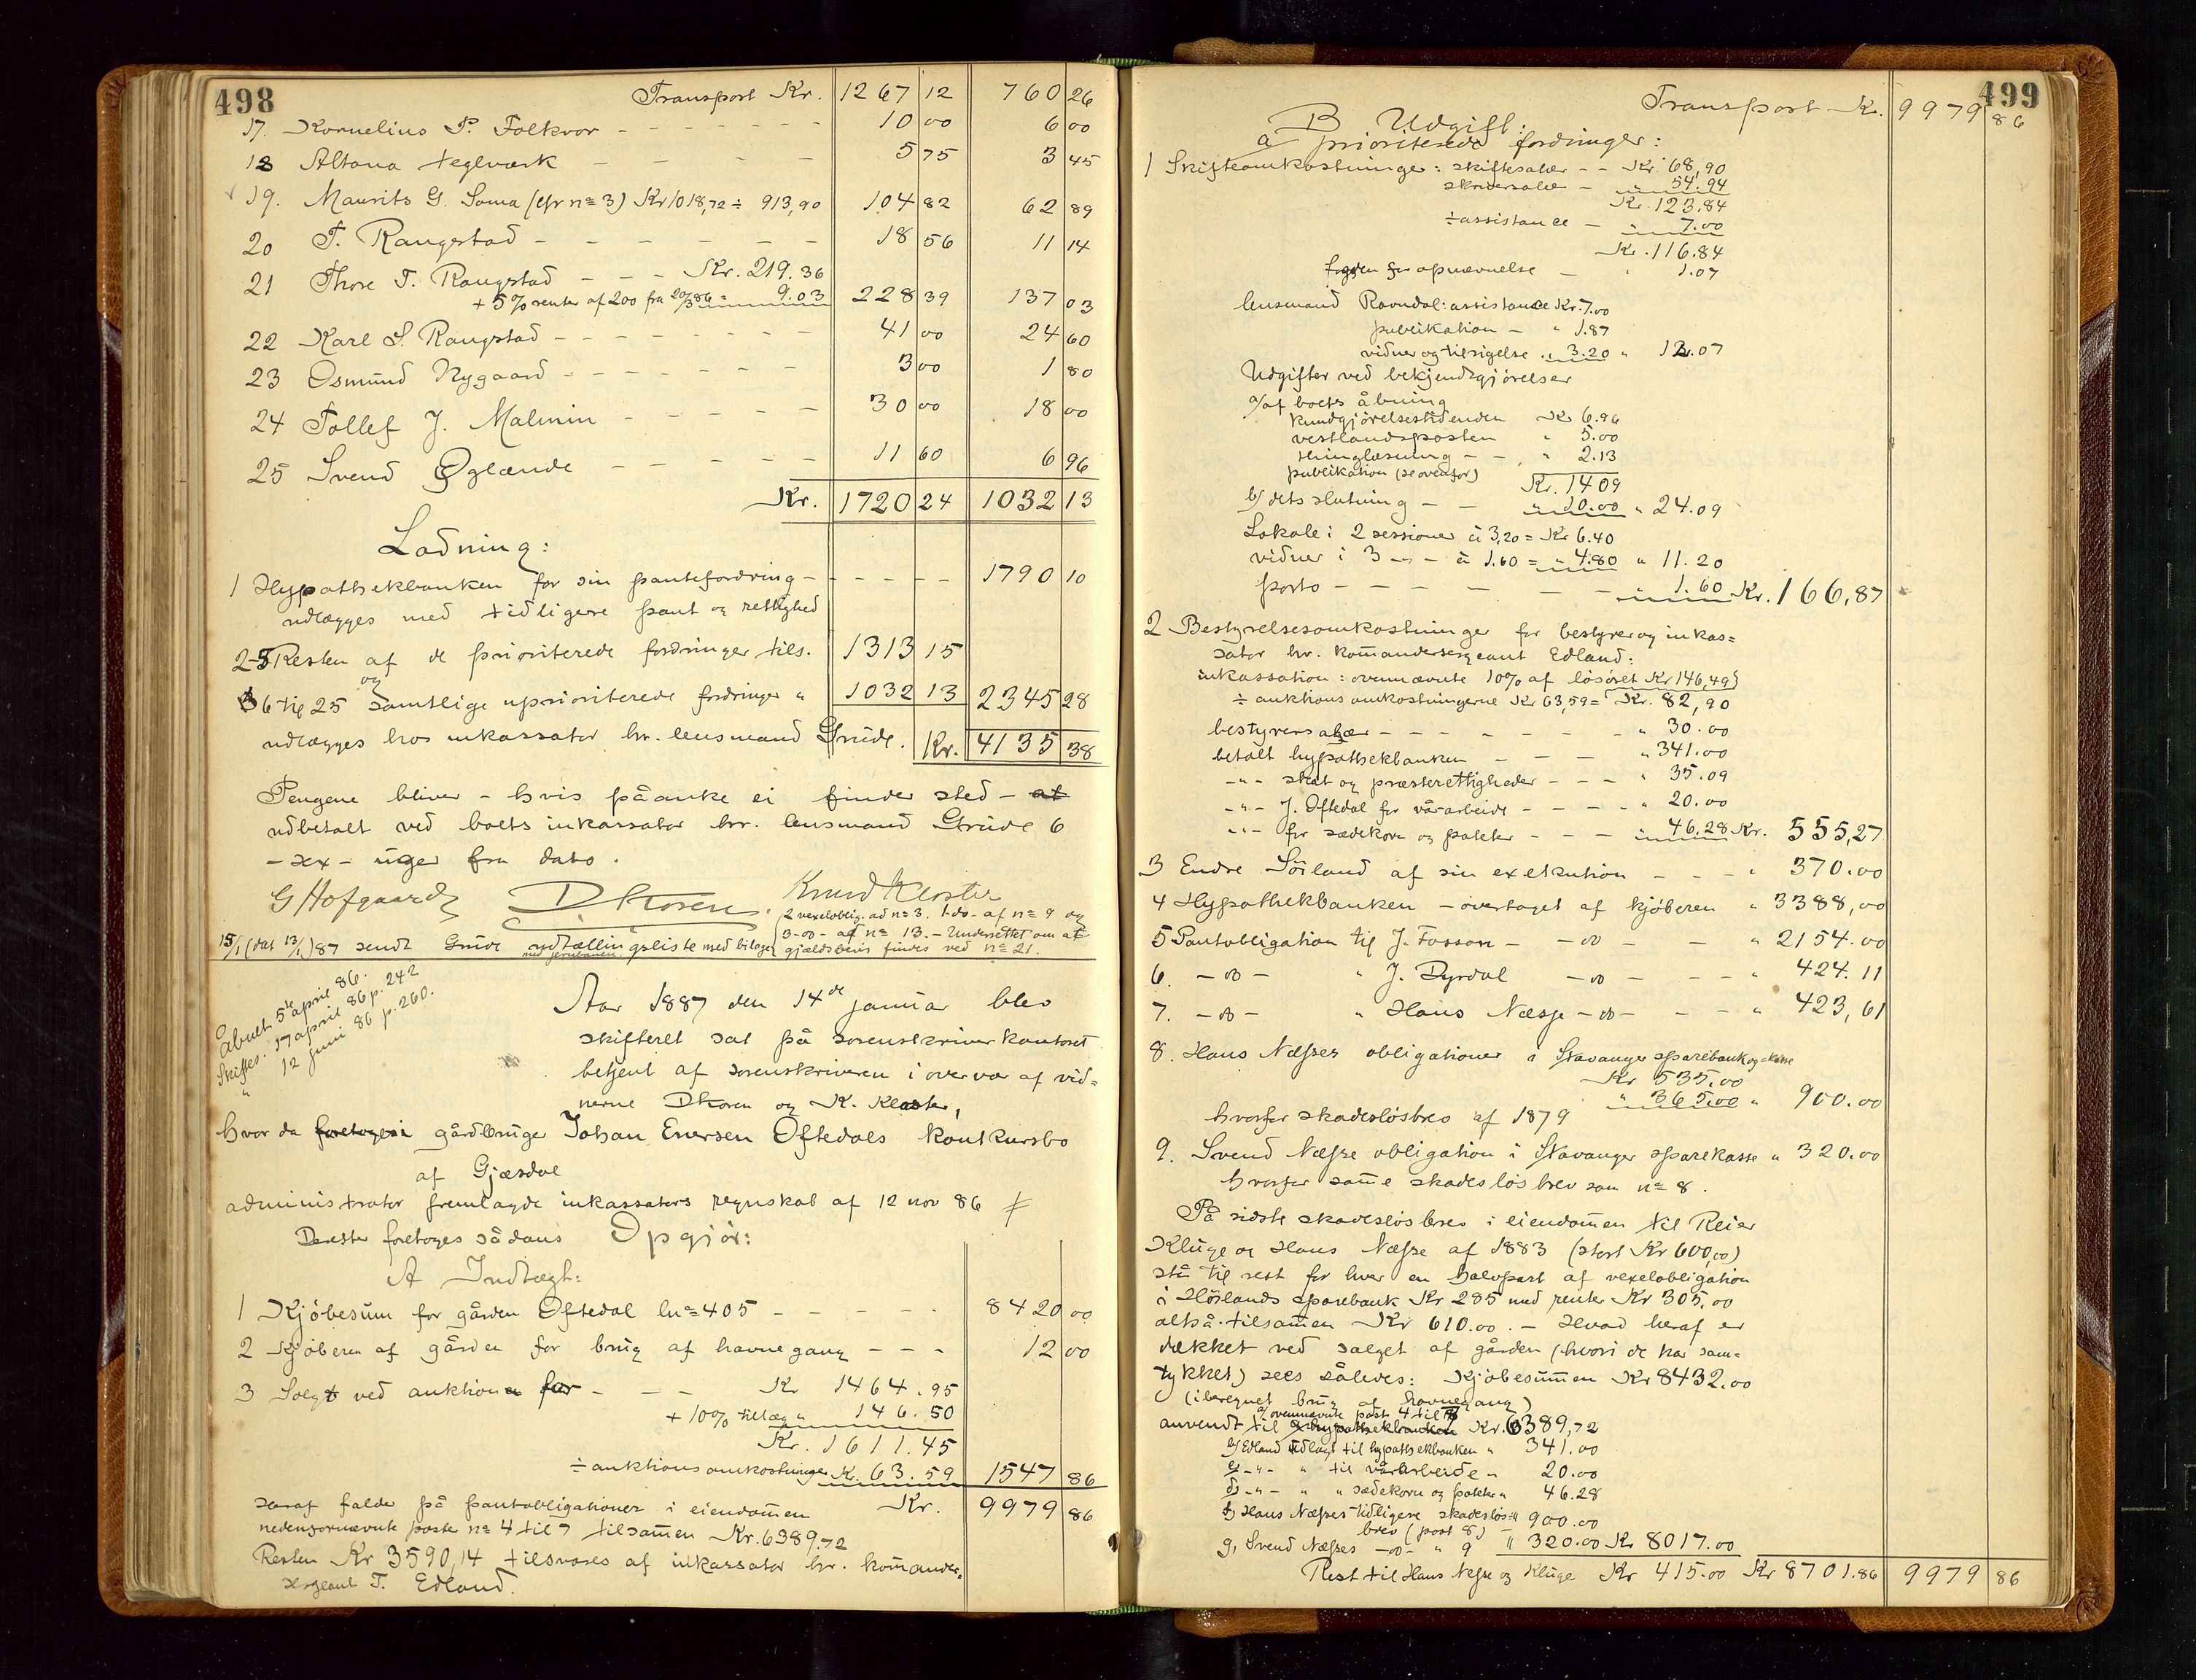 498
Transport Kr. 1267 12 760 26
17. Kornelius P. Folkvor - - - - - - 10 00 6 00
18 Altona teglværk - - - - 5 75 3 45
19. Maurits G. Soma (cfr n= 3) Kr 1018,72 ÷ 913,90 104 82 62 89
20 T. Rangstad - - - - - - 18 56 11 14
21 Thore T. Rangstad - - - Kr. 219.36
+ 5% renter af 200 fra 20/3 86 = 9.03 228 39 137 03
22 Karl S. Rangstad - - - - - - 41 00 24 60
23 Osmund Nygaard - - - - - - - 3 00 1 80
24 Tollef J. Malmin - - - - - 30 00 18 00
25 Svend Øglænde - - - - - 11 60 6 96
Kr. 1720 24 1032 13
Ladning:
1 Hypothekbanken for sin pantefordring - - - - - 1790 10
udlægges med tidligere pant og rettighed
2-5 Resten af de prioriterede fordringer tils. 1313 15
og
6 til 25 samtlige uprioriterede fordringer " 1032 13 2345 28
udlægges hos inkassator hr. lensmand Grude. Kr. 4135 38
Pengene bliver - hvis påanke ei finder sted - at
udbetalt ved boets inkassator hr. lensmand Grude 6
- sex - uger fra dato.
G Hofgaard D. Koren. Knud Kloster
2 vexeloblig. ad n= 3. 1 do - af n= 9 og
3 - do - ad n= 13. - Undersøttet om at
15/1 (dat 13/1) 87 sendt Grude udtællingsliste med bilager gjældsbevis findes ved n= 21.
med jernbanen
Åbnet 5te april 86.
Skiftes. 17 april 86 p. 242
" 12 juni 86 p. 260.
Aar 1887 den 14de januar blev
skifteret sat på sorenskriverkontoret
betjent af sorenskriveren i overvær af vid=
nerne D Koren og K. Kloster,
hvor da foretoges i gårdbruger Johan Enersen Oftedals konkursbo
af Gjæsdal
administrator fremlagde inkassators regnskab af 12 nov 86 #
Derefter foretoges sådans Opgjør:
A Indtægt:
1 Kjøbesum for gården Oftedal ln= 405 - - - - - 8420 00
2 Kjøberen af gården for brug af havnegang - - - 12 00
3 Solgt ved auktionen for - - - Kr 1464.95
+ 10% tillæg " 146.50
Kr. 1611.45
÷ auktionsomkostninger Kr. 63.59 1547 86
Heraf falder på pantobligationer i eiendommen Kr. 9979 86
nedenfornævnte poster n= 4 til 7 tilsammen Kr. 6389.72
Resten Kr 3590,14 tilsvares af inkassator hr. kommander=
sergeant T. Edland.
499
Transport Kr. 9979 86
B Udgift:
a prioriterede fordringer:
1 Skifteomkostninger: skiftesalær - - Kr. 68,90
skriversalær - " 54.94
Kr. 123,84
÷ assistance - " 7.00
Kr. 116.84
fogden for opnævnelse - " 1.07
lensmand Ravndal: assistance Kr. 7.00
publikation - " 1.87
vidner og tilsigelse " 3.20 " 12.07
Udgifter ved bekjendtgjørelser
a/ af boets åbning
kundgjørelsestidenden Kr 6.96
vestlandsposten " 5.00
thinglæsning - - " 2.13
publikation (se ovenfor)
Kr. 14 09
b/ dets slutning - - " 10.00 " 24.09
Lokale i 2 sessioner á 3,20 = Kr 6.40
vidner i 3 - " - á 1.60 = " 4.80 " 11.20
porto - - - - - - " 1.60 Kr. 166,87
2 Bestyrelsesomkostninger for bestyrer og inkas=
sator hr. kommandersergeant Edland:
inkassation: ovennævnte 10% af løsøret Kr 146,49
÷ auktionsomkostningerne Kr 63,59 = Kr. 82,90
bestyrersalær - - - - - - - " 30.00
betalt hypothekbanken - - - " 341.00
- " - skat og præsterettigheder - - - " 35.09
- " - J. Oftedal for vårarbeide - - - - " 20.00
- " - for sædekorn og poteter - - - " 46,28 Kr. 555,27
3 Endre Sörland af sin exekution - - - " 370.00
4 Hypothekbanken - overtaget af kjøberen " 3388,00
5 Pantobligation til J. Fosson - - do - - " 2154.00
6. - do - " J. Dyrdal - do - - - " 424.11
7. - do - " Hans Næsse - do - - - " 423,61
8. Hans Næsses obligationer i Stavanger sparebank og =kasse
Kr 535.00
" 365.00 " 900.00
hvorfor skadesløsbrev af 1879
9. Svend Næsse obligation i Stavanger sparekasse " 320.00
hvorfor samme skadesløsbrev som n= 8.
På sidste skadesløsbrev i eiendommen til Reier
Kluge og Hans Næsse af 1883 (stort Kr 600,00)
stå til rest for hver en halvpart af vexelobligation
i Høilands sparebank Kr 285 med renter Kr 305,00
altså tilsammen Kr 610.00. - Hvad heraf er
dækket ved salget af gården (hvori de har sam=
tykket) sees således: Kjøbesummen Kr 8432.00
(iberegnet brug af havnegang)
a/ ovennævnte post 4 til 7
anvendt til hypothekbanken Kr. 6389,72
b/ Edland udlagt til hypothekbanken " 341.00
c/ - " - " til vårarbeide " 20.00
d/ - " - " " sædekorn og poteter " 46.28
f, Hans Næsses tidligere skadesløs= " 900.00
brev (post 8)
g, Svend Næsses - do - " 9 " 320.00 Kr 8017.00
Rest til Hans Næsse og Kluge Kr 415.00 Kr 8701.86 9979 86